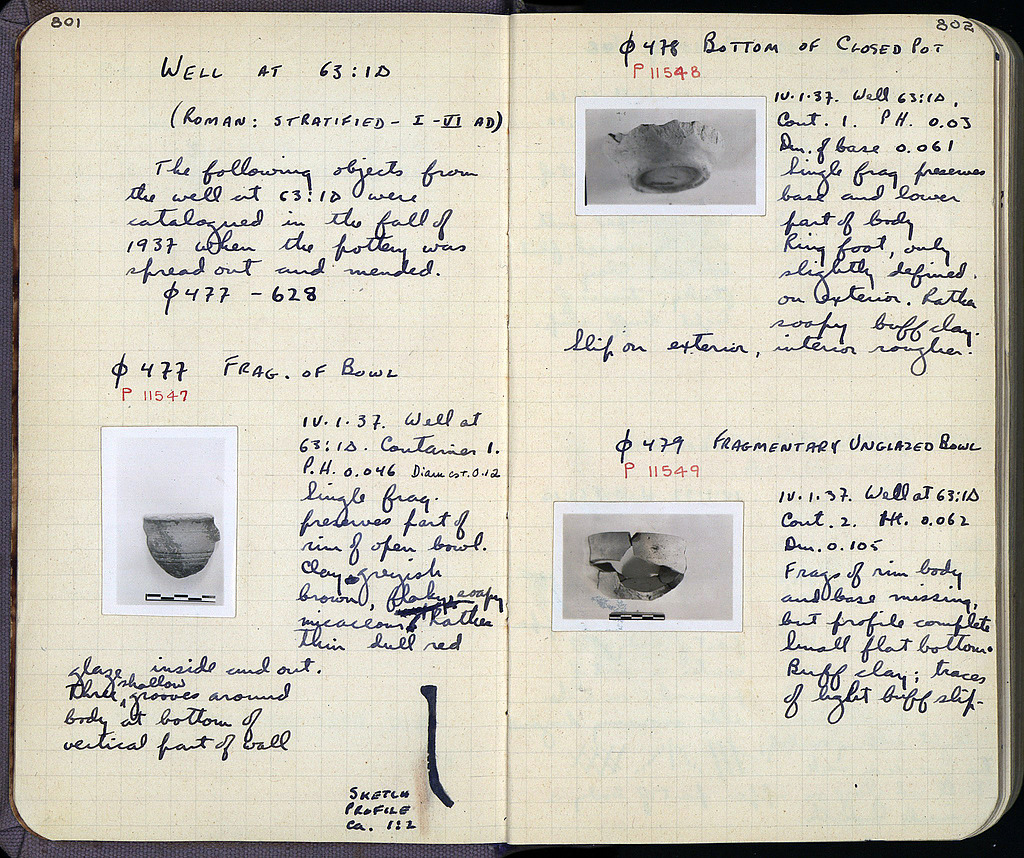 801
WELL AT 63:1Δ
(ROMAN: STRATIFIED - I-VI AD)
The following objects from
the well at 63:1Δ were
catalogued in the fall of
1937 when the pottery was
spread out and mended.
φ477 - 628
φ 477 FRAG. OF BOWL
P 11547
IV.1.37. Well at
63:1Δ. Container 1.
P.H. 0.046 Diam est. 0.12
Single frag.
preserves part of
rim of open bowl.
Clay greyish
brown, flaky, soapy
micaceous. Rather
thin dull red
glaze inside and out.
Three shallow grooves around
body at bottom of
vertical part of wall
SKETCH
PROFILE
ca. 1:2
802
φ 478 BOTTOM OF CLOSED POT
P 11548
IV.1.37. Well 63:1Δ,
Cont. 1. P.H. 0.03
Dm. of base 0.061
Single frag preserves
base and lower
part of body
Ring foot, only
slightly defined
on exterior. Rather
soapy buff clay.
Slip on exterior, interior rougher.
φ 479 FRAGMENTARY UNGLAZED BOWL
P 11549
IV.1.37. Well at 63:1Δ
Cont. 2. Ht. 0.062
Dm. 0.105
Frags of rim body
and base missing,
but profile complete
Small flat bottom.
Buff clay; traces
of light buff slip-